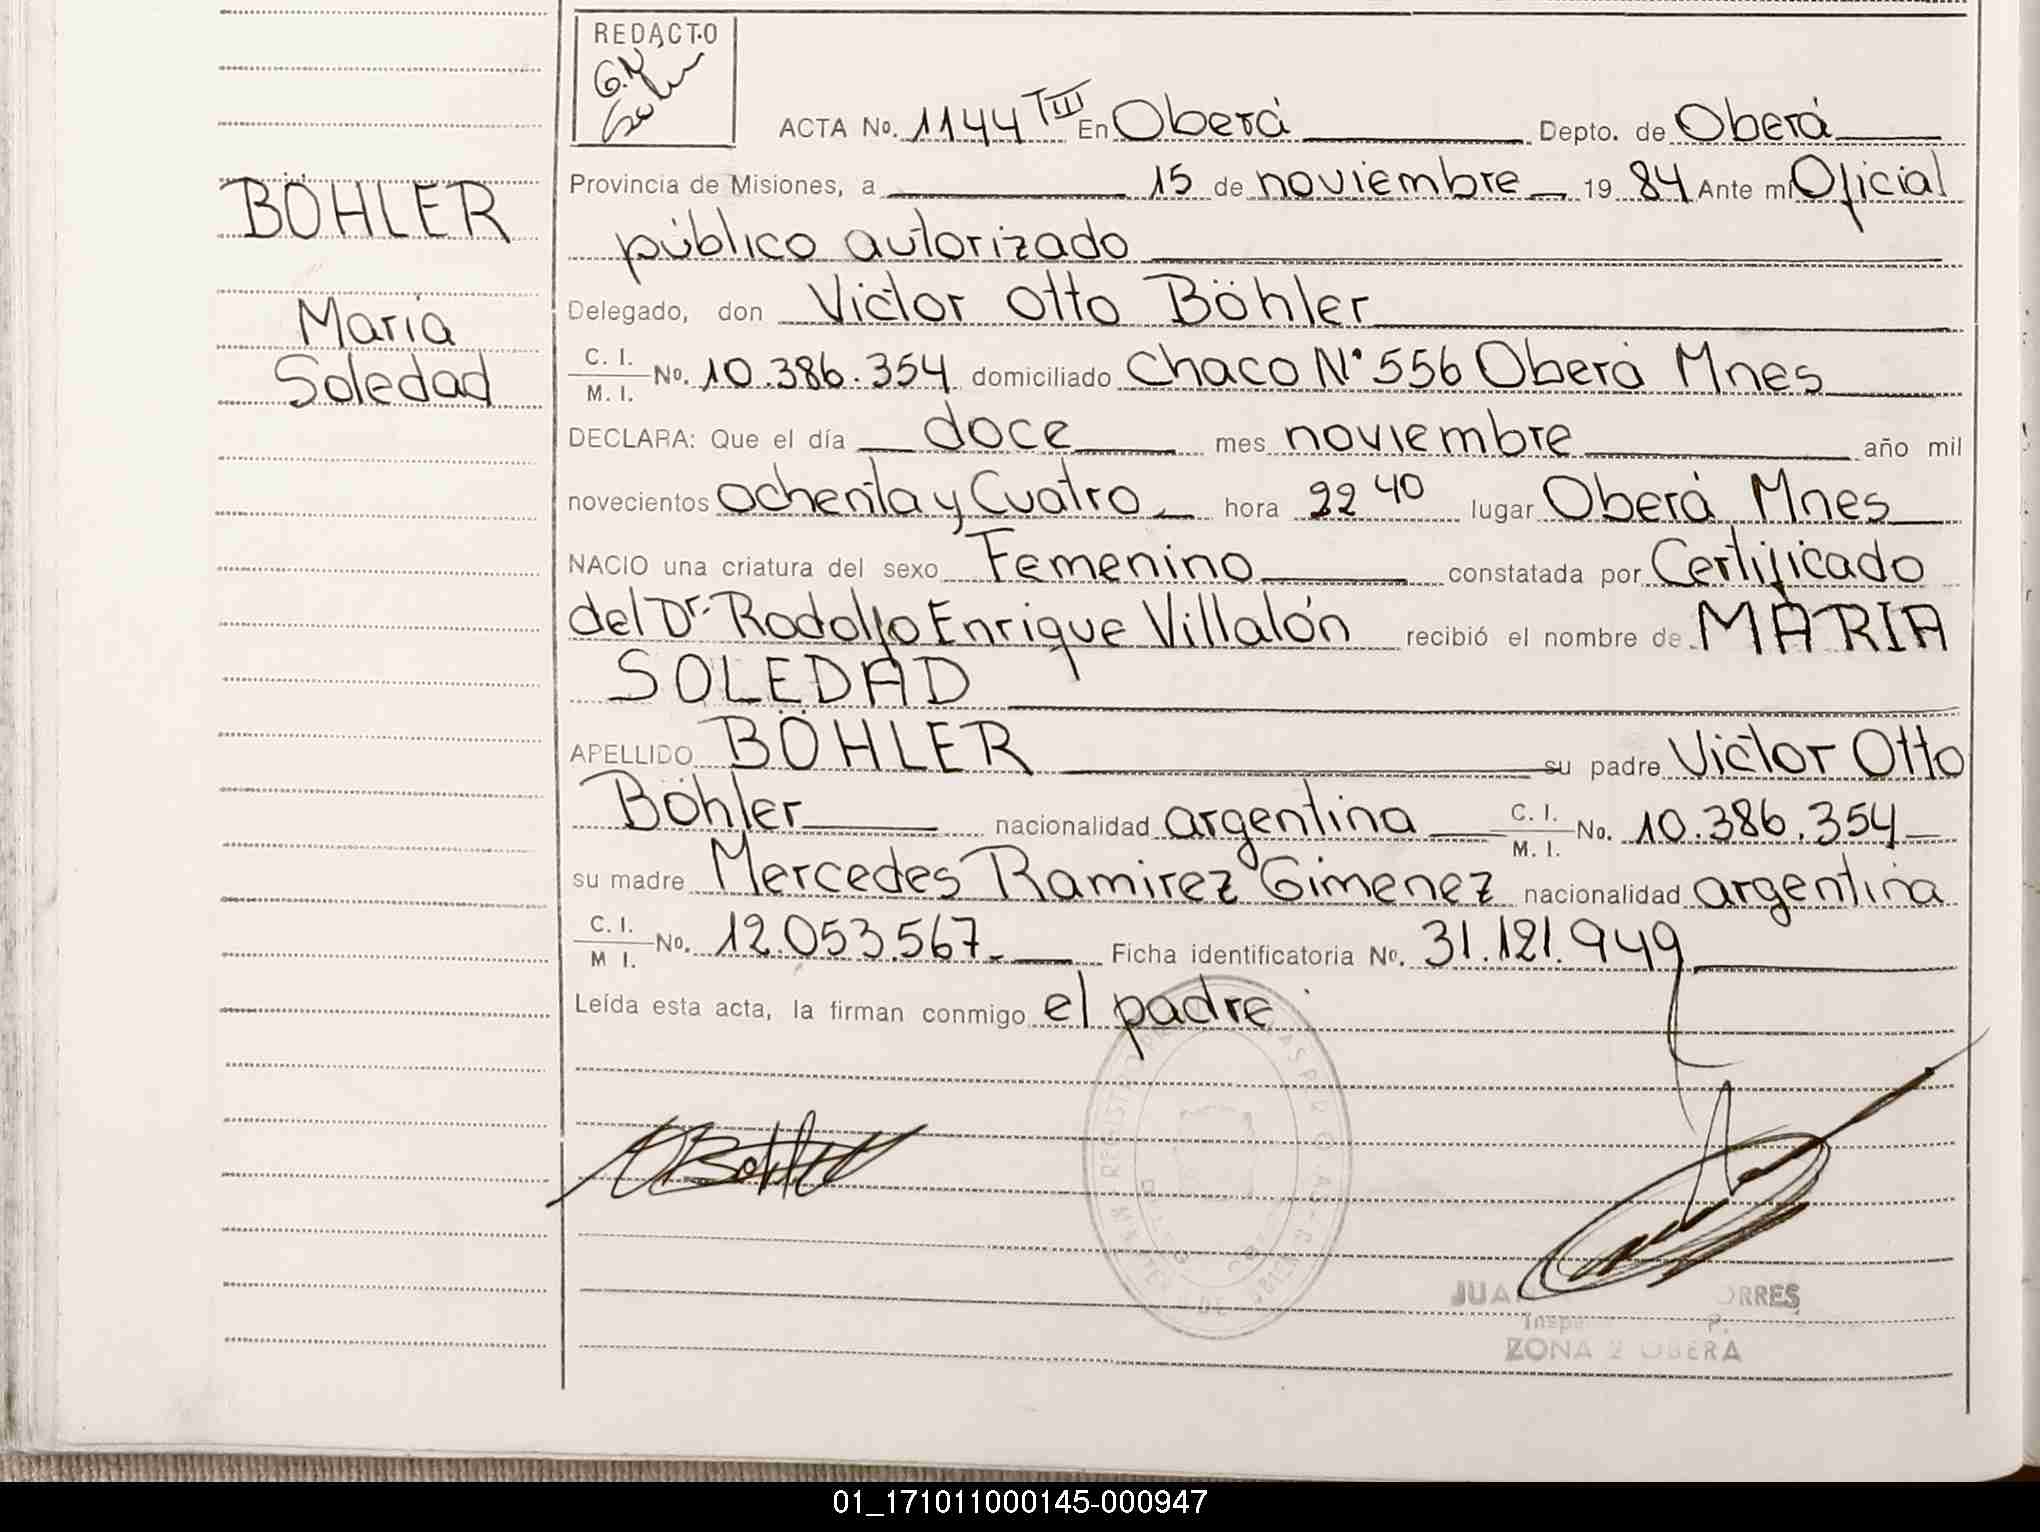 REDACTO
BÖHLER
María
Soledad
ACTA No. 1144 TIII En Oberá Depto. de Oberá
Provincia de Misiones, a 15 de noviembre 19 84 Ante mí Oficial
público autorizado
Delegado, don Victor Otto Böhler
C. I.
M. I. No. 10.386.354 domiciliado Chaco N° 556 Oberá Mnes
DECLARA: Que el día doce mes noviembre año mil
novecientos ochenta y Cuatro hora 22 40 lugar Oberá Mnes
NACIO una criatura del sexo Femenino constatada por Certificado
del Dr. Rodolfo Enrique Villalón recibió el nombre de MARIA
SOLEDAD
APELLIDO BÖHLER su padre Victor Otto
Böhler nacionalidad argentina C. I.
M. I. No. 10.386.354
su madre Mercedes Ramirez Gimenez nacionalidad argentina
C. I.
M I. No. 12.053.567 Ficha identificatoria No. 31.121.949
Leída esta acta, la firman conmigo el padre
ZONA 2 OBERA
01_171011000145-000947